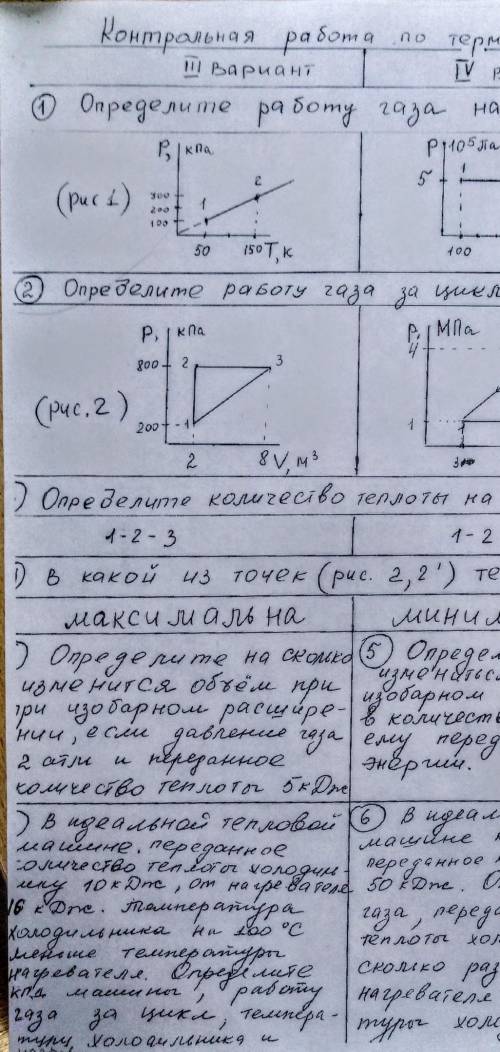 Контрольная работа по терм
III Вариант
IV в
① Определите работу газа на
(рис 1)
P, кПа
300
200
100
1
2
50
150
T, К
P 10⁵Па
5
1
100
② Определите работу газа за цикл
(рис. 2)
P, кПа
800
2
3
200
1
2
8
V, м³
P, МПа
4
1
1
) Определите количество теплоты на
1-2-3
1-2
) В какой из точек (рис. 2, 2') те
максимальна
миним
) Определите на сколько
изменится объём при
при изобарном расшире-
нии, если давление газа
2 атм и переданное
количество теплоты 5 кДж
⑤ Определ
изменитьс
изобарном
в количеств
ему перед
энергии.
) В идеальной тепловой
машине, переданное
количество теплоты холодиль-
нику 10 кДж, от нагревателя
16 кДж. Температура
холодильника на 100 °C
меньше температуры
нагревателя. Определите
кпд машины, работу
газа за цикл, темпера-
туру холодильника и
⑥ В идеал
машине
переданное
50 кДж. О
газа, переда
теплоты хол
сколько раз
нагревателя
туры холо